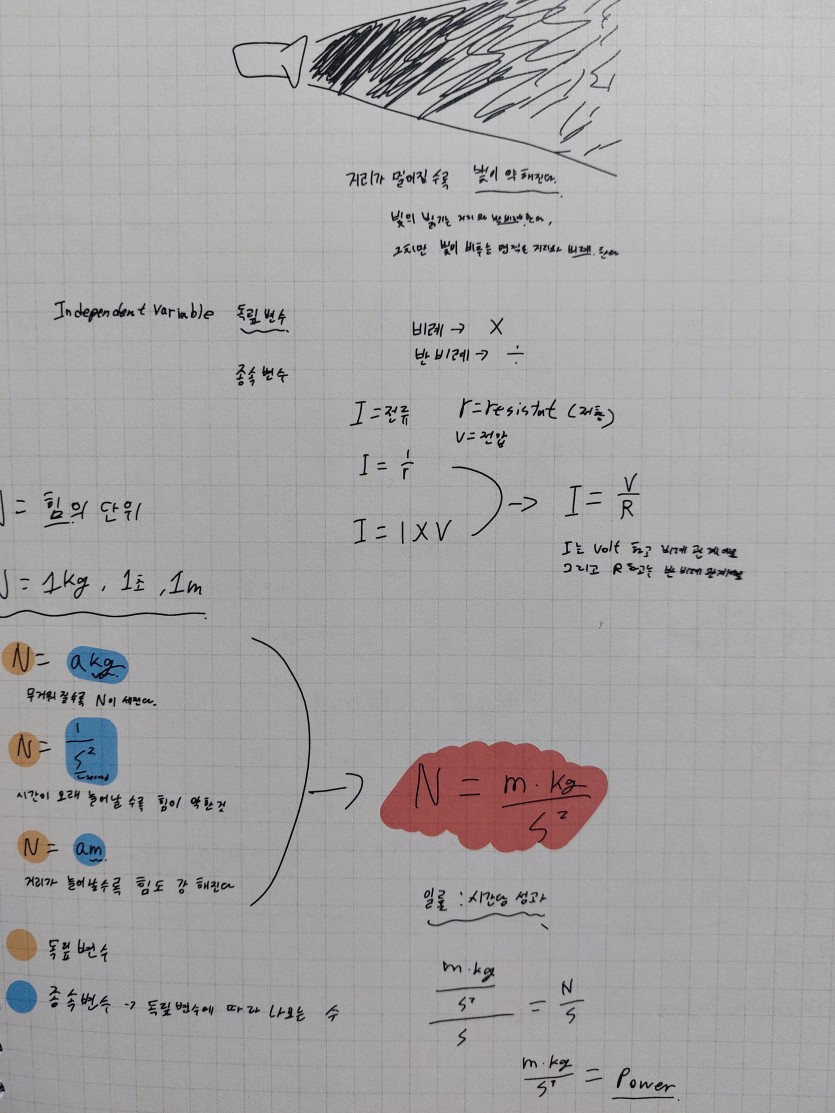 거리가 멀어질수록 빛이 약해진다.
빛의 밝기는 거리와 반비례한다,
그치만 빛이 비추는 면적은 거리와 비례 한다
Independent variable 독립변수
종속변수
비례 → X
반비례 → ÷
I = 전류 r = resistat (저항)
V = 전압
I = 1/r
I = 1 X V
→ I = V/R
I는 Volt 하고 비례 관계며
그리고 R 하고는 반비례관계며
N = 힘의 단위
N = 1kg, 1초, 1m
N = akg
무거워질수록 N이 세진다.
N = 1/s²
second
시간이 오래 늘어날 수록 힘이 약한것
N = am
거리가 늘어날수록 힘도 강해진다
→ N = m·kg/s²
일률 : 시간당 성과
독립변수
종속변수 → 독립변수에 따라 나오는 수
m·kg/s²/s = N/s
m·kg/s² = Power